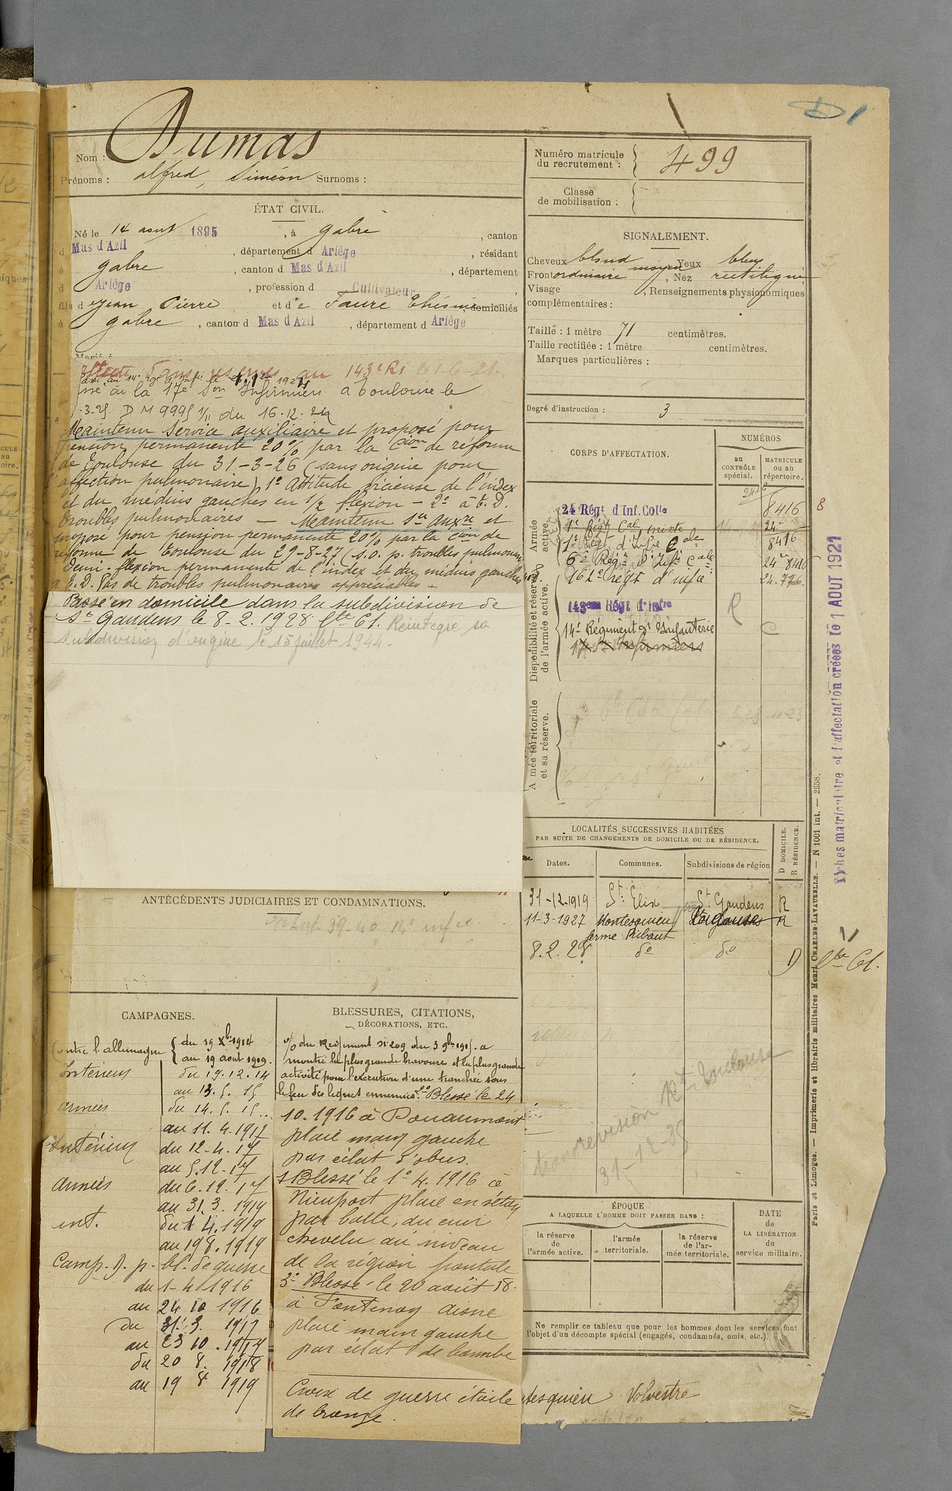 D1
Nom : Dumas
Prénoms : Alfred, Simeon Surnoms :
ÉTAT CIVIL.
Né le 14 aout 1895, à gabre, canton
d Mas d'Azil, département d Ariège, résidant
à gabre, canton d Mas d'Azil, département
d Ariège, profession d Cultivateur
fils d Jean Pierre et de Faure domiciliés
à gabre, canton d Mas d'Azil, département d Ariège
143e RI le 1-6-21.
à la 17e Son Infirmiers à Toulouse le
DM 9995 1/11 du 16.12.24
Maintenu Service auxiliaire et proposé pour
pension permanente 20% par la Cion de réforme
de Toulouse du 31-3-26 (sans origine pour
affection pulmonaire) 1° Attitude vicieuse de l'index
et du medius gauches en 1/2 flexion - 2° à E.D.
troubles pulmonaires - Maintenu Sce auxre et
proposé pour pension permanente 20% par la Cion de
réforme de Toulouse du 29-8-27 (S.O. p. troubles pulmonaires
Demi-flexion permanente de l'index et du médius gauches
E.D. Pas de troubles pulmonaires appréciables -
Passé en domicile dans la subdivision de
St Gaudens le 8-2-1928 Cte Ct. Réintègre sa
subdivision d'origine le 15 juillet 1944.
ANTÉCÉDENTS JUDICIAIRES ET CONDAMNATIONS.
39-40 14e infie
CAMPAGNES.
Contre l'allemagne { du 19 Xbre 1914
au 19 aout 1919.
Intérieur du 19.12.14
au 13.5.15
armées du 14.5.15
au 11.4.1917
Intérieur du 12-4-17
au 5.12.17
Armées du 6.12.17
au 31.3.1919
int. du 1 4.1919
au 19 8.1919
Camp. D. p. bl. de guerre
du 1-4-1916
au 24 10 1916
du 31 3. 1917
au 23 10. 1917
du 20 8. 1918
au 19 8 1919
BLESSURES, CITATIONS,
DÉCORATIONS, ETC.
O/ du Régiment N° 209 du 3 9bre 1915. a
montré la plus grande bravoure et la plus grande
activité pour l'exécution d'une tranchée sous
le feu des lignes ennemies. 2° Blessé le 24
10.1916 à Douaumont
plaie main gauche
par éclat d'obus.
1° Blessé le 1er 4.1916 à
Nieuport plaie en séton
par balle, du cuir
chevelu au niveau
de la région frontale
3° Blessé le 20 août 18.
à Fontenoy aisne
plaie main gauche
par éclat de bombe
Croix de guerre étoile
de bronze.
Numéro matricule
du recrutement : 499
Classe
de mobilisation :
SIGNALEMENT.
Cheveux blond Yeux bleus
Front ordinaire moyen, Nez rectiligne
Visage , Renseignements physionomiques
complémentaires :
Taille : 1 mètre 71 centimètres.
Taille rectifiée : 1 mètre centimètres.
Marques particulières :
Degré d'instruction : 3
CORPS D'AFFECTATION.
NUMÉROS
au
CONTRÔLE
spécial.
MATRICULE
ou au
répertoire.
Armée
active.
Disponibilité et réserve
de l'armée active.
24 Régt d'Inf. Colle
8416
8
1er Régt Col mixte
24
1er Régt d'Infie Cale
8416
6e Régt d'Infie Cale
24 8416
162e Régt d'infie
24.776
143eme Régt d'Infie
R
14e Régiment d'Infanterie
C
17e Son Infirmiers
Armée territoriale
et sa réserve.
LOCALITÉS SUCCESSIVES HABITÉES
PAR SUITE DE CHANGEMENTS DE DOMICILE OU DE RÉSIDENCE.
Dates.
Communes.
Subdivisions de région
D DOMICILE.
R RÉSIDENCE.
31-12-1919 St Elix St Gaudens R
11-3-1927 Montesquieu Toulouse R
ferme Ribaut
8.2.28 do do D
Cte Ct.
transrévision Rt Toulouse
31-12-35
ÉPOQUE
A LAQUELLE L'HOMME DOIT PASSER DANS :
la réserve
de
l'armée active.
l'armée
territoriale.
la réserve
de l'ar-
mée territoriale.
DATE
de
LA LIBÉRATION
du
service militaire.
Ne remplir ce tableau que pour les hommes dont les services font
l'objet d'un décompte spécial (engagés, condamnés, omis, etc.)
Montesquieu Volvestre
Paris et Limoges. — Imprimerie et librairie militaires Henri CHARLES-LAVAUZELLE. — N 1001 int. — 2658.
Fiches matriculaire et d'affectation créées le 1 AOUT 1921